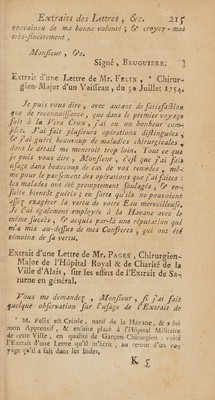 Extraits des Lettres, &c. 215
convaincu de ma bonne volonté ; & croyez-moi
très-sincèrement,
Monsieur, &c.
Signé, BRUGUIERE.
Extrait d'une Lettre de Mr. FELIX, * Chirur-
gien-Major d'un Vaisseau, du 30 Juillet 1754.
Je puis vous dire, avec autant de satisfaction
que de reconnoissance, que dans le premier voyage
fait à la Vera Crux, j'ai eu un bonheur com-
plet. J'ai fait plusieurs opérations distinguées,
& j'ai guéri beaucoup de maladies chirurgicales,
dont le détail me meneroit trop loin. Tout ce que
je puis vous dire, Monsieur, c'est que j'ai fait
usage dans beaucoup de cas de vos remedes, mê-
me pour le pansement des opérations que j'ai faites :
les malades ont été promptement soulagés, & en-
suite bientôt guéris ; en sorte qu'ils ne pouvoient
assez exagérer la vertu de votre Eau merveilleuse.
Je l'ai également employée à la Havane avec le
même succès, & acquis par-là une réputation qui
m'a mis au-dessus de mes Confreres, qui ont été
témoins de sa vertu.
Extrait d'une Lettre de Mr. PAGES, Chirurgien-
Major de l'Hôpital Royal & de Charité de la
Ville d'Alais, sur les effets de l'Extrait de Sa-
turne en général.
Vous me demandez, Monsieur, si j'ai fait
quelque observation sur l'usage de l'Extrait de
* M. Felix est Créole, natif de la Havane, & a été
mon Apprentif, & ensuite placé à l'Hôpital Militaire
de cette Ville, en qualité de Garçon-Chirurgien : voici
l'Extrait d'une Lettre qu'il m'écrit, au retour d'un vo-
yage qu'il a fait dans les Indes,
K